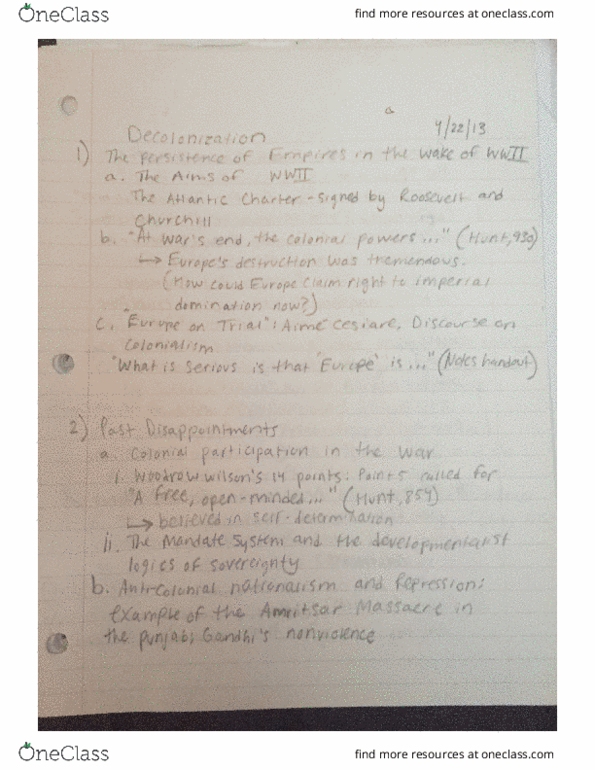 OneClass
find more resources at oneclass.com
a
4/22/13
Decolonization
1) The Persistence of Empires in the wake of WWII
a. The Aims of WWII
The Atlantic Charter - signed by Roosevelt and
Churchill
b. "At war's end, the colonial powers..." (Hunt, 930)
↳ Europe's destruction was tremendous.
(How could Europe claim right to imperial
domination now?)
c. "Europe on Trial": Aimé Cesiare, Discourse on
Colonialism
"What is serious is that 'Europe' is..." (Notes handout)
2) Past Disappointments
a. Colonial participation in the war
i. Woodrow Wilson's 14 points: Point 5 called for
"A free, open-minded..." (Hunt, 854)
↳ believed in self-determination
ii. The Mandate System and the developmentalist
logics of sovereignty
b. Anti-colonial nationalism and Repression:
example of the Amritsar Massacre in
the Punjab; Gandhi's nonviolence
OneClass
find more resources at oneclass.com